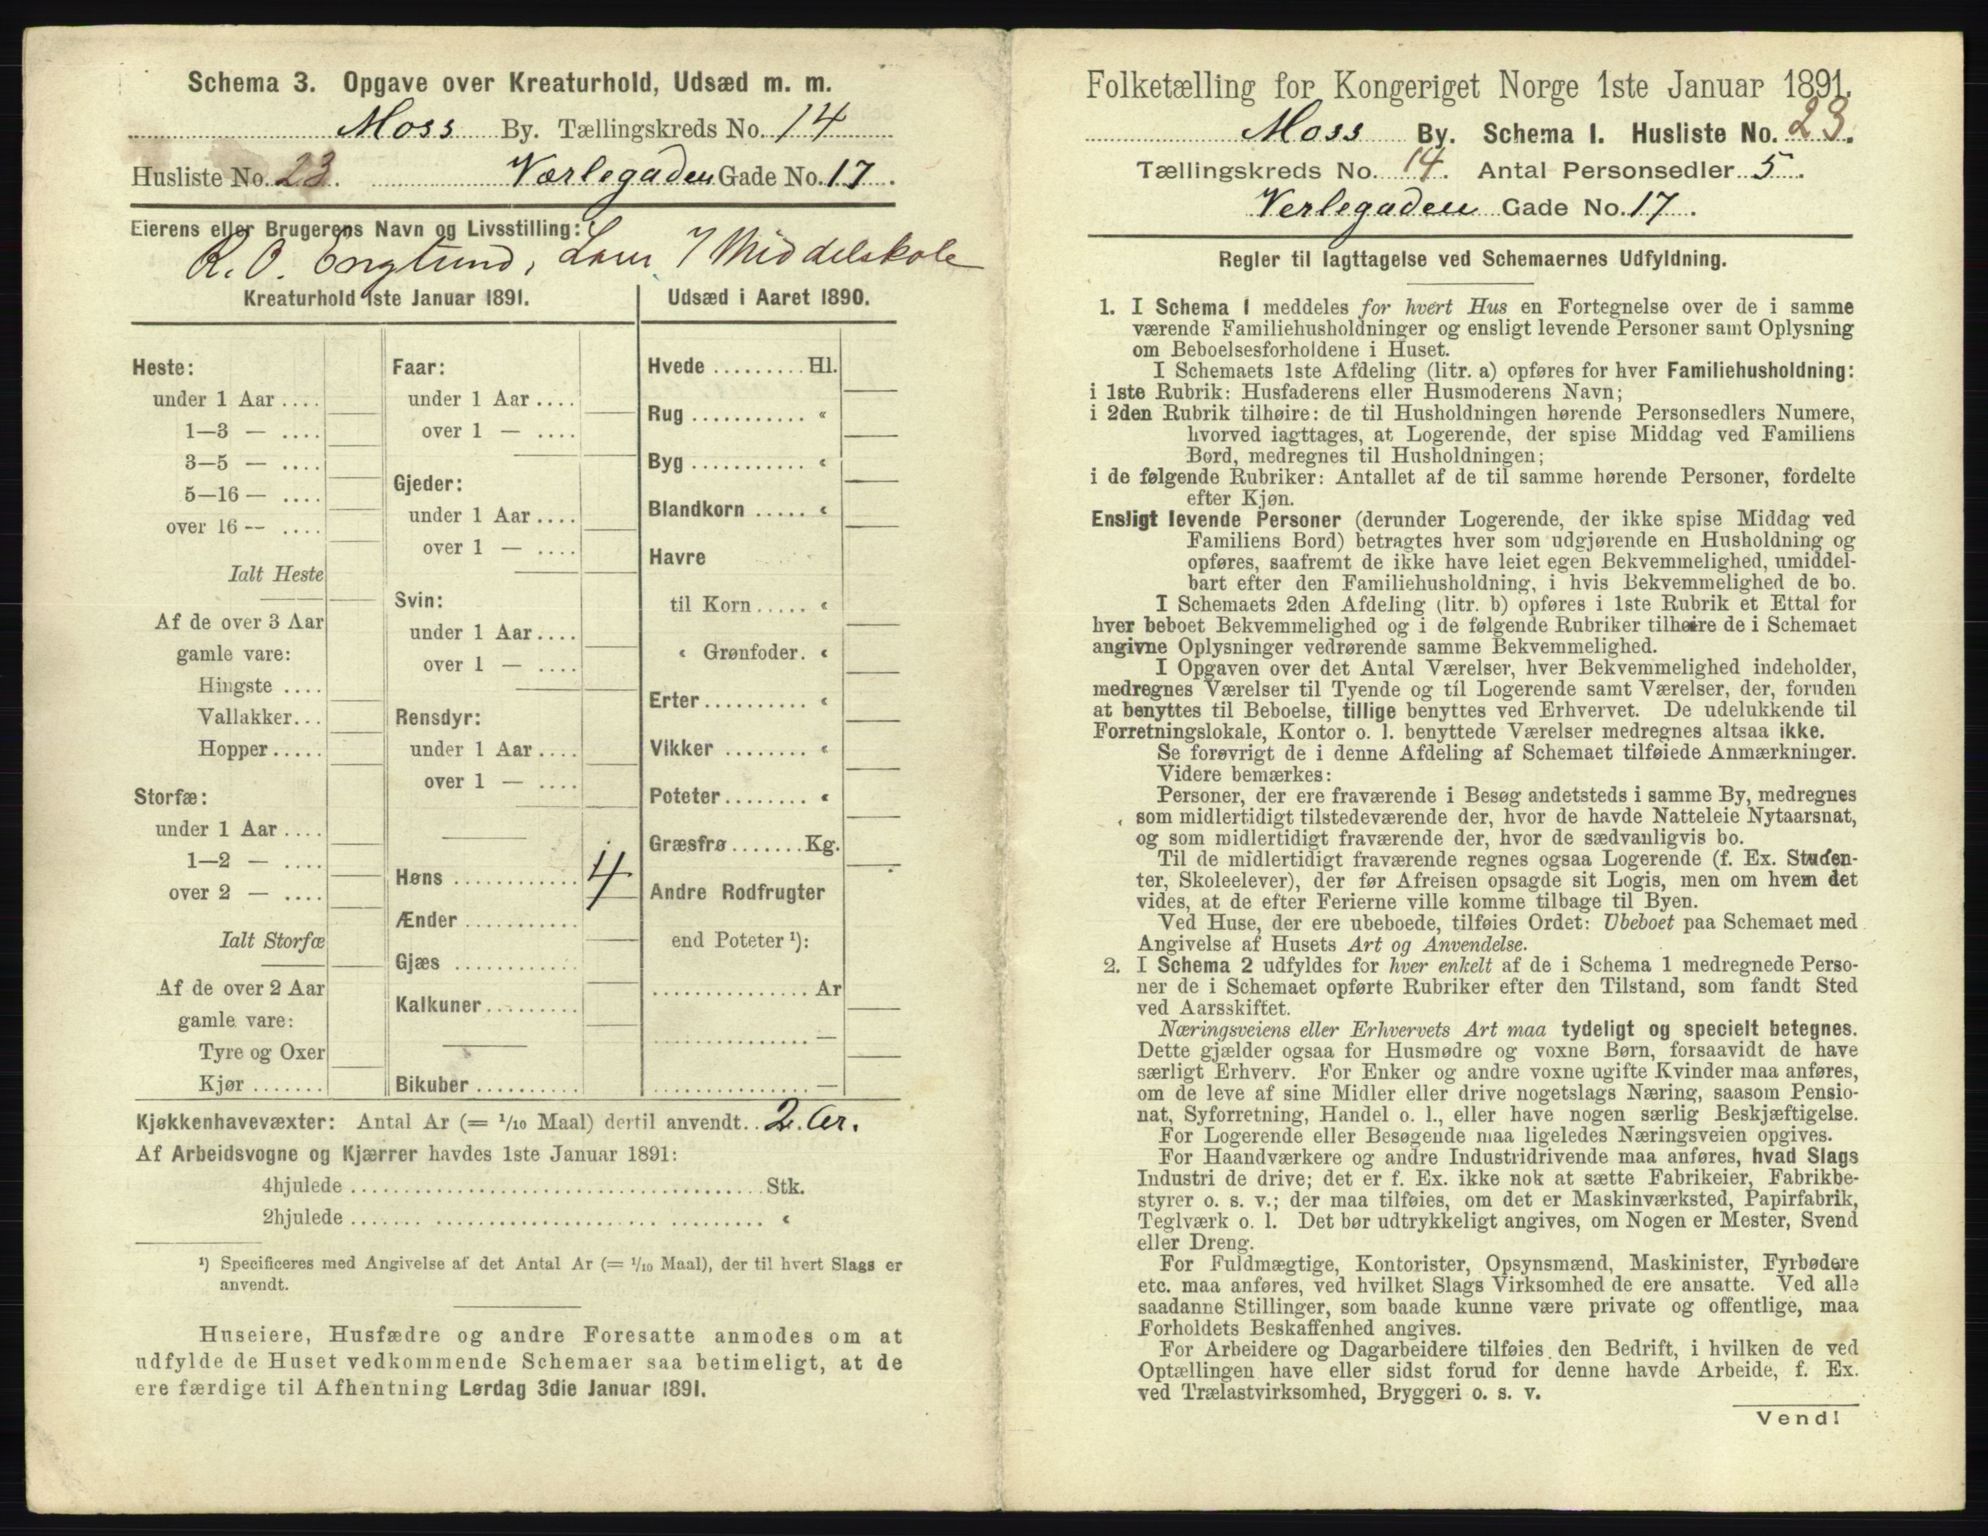 Schema 3. Opgave over Kreaturhold, Udsæd m. m.
Moss By. Tællingskreds No. 14
Husliste No. 23. Værlegaden Gade No. 17.
Eierens eller Brugerens Navn og Livsstilling:
R. O. Englund, Middelskole
Kreaturhold 1ste Januar 1891.
Heste:
under 1 Aar ....
1—3 — ....
3—5 — ....
5—16 — ....
over 16 — ....
Ialt Heste
Af de over 3 Aar
gamle vare:
Hingste ....
Vallakker...
Hopper.....
Storfæ:
under 1 Aar ....
1—2 — ....
over 2 — ....
Ialt Storfæ
Af de over 2 Aar
gamle vare:
Tyre og Oxer
Kjør .......
Faar:
under 1 Aar ....
over 1 — ....
Gjeder:
under 1 Aar ....
over 1 — ....
Svin:
under 1 Aar ....
over 1 — ....
Rensdyr:
under 1 Aar ....
over 1 — ....
Høns ............ 4
Ænder ...........
Gjæs ............
Kalkuner.........
Bikuber..........
Udsæd i Aaret 1890.
Hvede ......... Hl.
Rug ........... «
Byg ........... «
Blandkorn ..... «
Havre
til Korn ..... «
« Grønfoder. «
Erter.......... «
Vikker ........ «
Poteter........ «
Græsfrø....... Kg.
Andre Rodfrugter
end Poteter ¹):
............... Ar
............... —
............... —
Kjøkkenhavevæxter: Antal Ar (= 1/10 Maal) dertil anvendt.. 2 Ar.
Af Arbeidsvogne og Kjærrer havdes 1ste Januar 1891:
4hjulede ........................................ Stk.
2hjulede ........................................ «
¹) Specificeres med Angivelse af det Antal Ar (= 1/10 Maal), der til hvert Slags er
anvendt.
Huseiere, Husfædre og andre Foresatte anmodes om at
udfylde de Huset vedkommende Schemaer saa betimeligt, at de
ere færdige til Afhentning Lørdag 3die Januar 1891.
Folketælling for Kongeriget Norge 1ste Januar 1891.
Moss By. Schema 1. Husliste No. 23.
Tællingskreds No. 14. Antal Personsedler 5.
Verlegaden Gade No. 17.
Regler til Iagttagelse ved Schemaernes Udfyldning.
1. I Schema 1 meddeles for hvert Hus en Fortegnelse over de i samme
værende Familiehusholdninger og ensligt levende Personer samt Oplysning
om Beboelsesforholdene i Huset.
I Schemaets 1ste Afdeling (litr. a) opføres for hver Familiehusholdning:
i 1ste Rubrik: Husfaderens eller Husmoderens Navn;
i 2den Rubrik tilhøire: de til Husholdningen hørende Personsedlers Numere,
hvorved iagttages, at Logerende, der spise Middag ved Familiens
Bord, medregnes til Husholdningen;
i de følgende Rubriker: Antallet af de til samme hørende Personer, fordelte
efter Kjøn.
Ensligt levende Personer (derunder Logerende, der ikke spise Middag ved
Familiens Bord) betragtes hver som udgjørende en Husholdning og
opføres, saafremt de ikke have leiet egen Bekvemmelighed, umiddel-
bart efter den Familiehusholdning, i hvis Bekvemmelighed de bo.
I Schemaets 2den Afdeling (litr. b) opføres i 1ste Rubrik et Ettal for
hver beboet Bekvemmelighed og i de følgende Rubriker tilhøire de i Schemaet
angivne Oplysninger vedrørende samme Bekvemmelighed.
I Opgaven over det Antal Værelser, hver Bekvemmelighed indeholder,
medregnes Værelser til Tyende og til Logerende samt Værelser, der, foruden
at benyttes til Beboelse, tillige benyttes ved Erhvervet. De udelukkende til
Forretningslokale, Kontor o. l. benyttede Værelser medregnes altsaa ikke.
Se forøvrigt de i denne Afdeling af Schemaet tilføiede Anmærkninger.
Videre bemærkes:
Personer, der ere fraværende i Besøg andetsteds i samme By, medregnes
som midlertidigt tilstedeværende der, hvor de havde Natteleie Nytaarsnat,
og som midlertidigt fraværende der, hvor de sædvanligvis bo.
Til de midlertidigt fraværende regnes ogsaa Logerende (f. Ex. Studen-
ter, Skoleelever), der før Afreisen opsagde sit Logis, men om hvem det
vides, at de efter Ferierne ville komme tilbage til Byen.
Ved Huse, der ere ubeboede, tilføies Ordet: Ubeboet paa Schemaet med
Angivelse af Husets Art og Anvendelse.
2. I Schema 2 udfyldes for hver enkelt af de i Schema 1 medregnede Perso-
ner de i Schemaet opførte Rubriker efter den Tilstand, som fandt Sted
ved Aarsskiftet.
Næringsveiens eller Erhvervets Art maa tydeligt og specielt betegnes.
Dette gjælder ogsaa for Husmødre og voxne Børn, forsaavidt de have
særligt Erhverv. For Enker og andre voxne ugifte Kvinder maa anføres,
om de leve af sine Midler eller drive nogetslags Næring, saasom Pensio-
nat, Syforretning, Handel o. l., eller have nogen særlig Beskjæftigelse.
For Logerende eller Besøgende maa ligeledes Næringsveien opgives.
For Haandværkere og andre Industridrivende maa anføres, hvad Slags
Industri de drive; det er f. Ex. ikke nok at sætte Fabrikeier, Fabrikbe-
styrer o. s. v.; der maa tilføies, om det er Maskinværksted, Papirfabrik,
Teglværk o. l. Det bør udtrykkeligt angives, om Nogen er Mester, Svend
eller Dreng.
For Fuldmægtige, Kontorister, Opsynsmænd, Maskinister, Fyrbødere
etc. maa anføres, ved hvilket Slags Virksomhed de ere ansatte. Ved alle
saadanne Stillinger, som baade kunne være private og offentlige, maa
Forholdets Beskaffenhed angives.
For Arbeidere og Dagarbeidere tilføies den Bedrift, i hvilken de ved
Optællingen have eller sidst forud for denne havde Arbeide, f. Ex.
ved Trælastvirksomhed, Bryggeri o. s. v.
Vend!